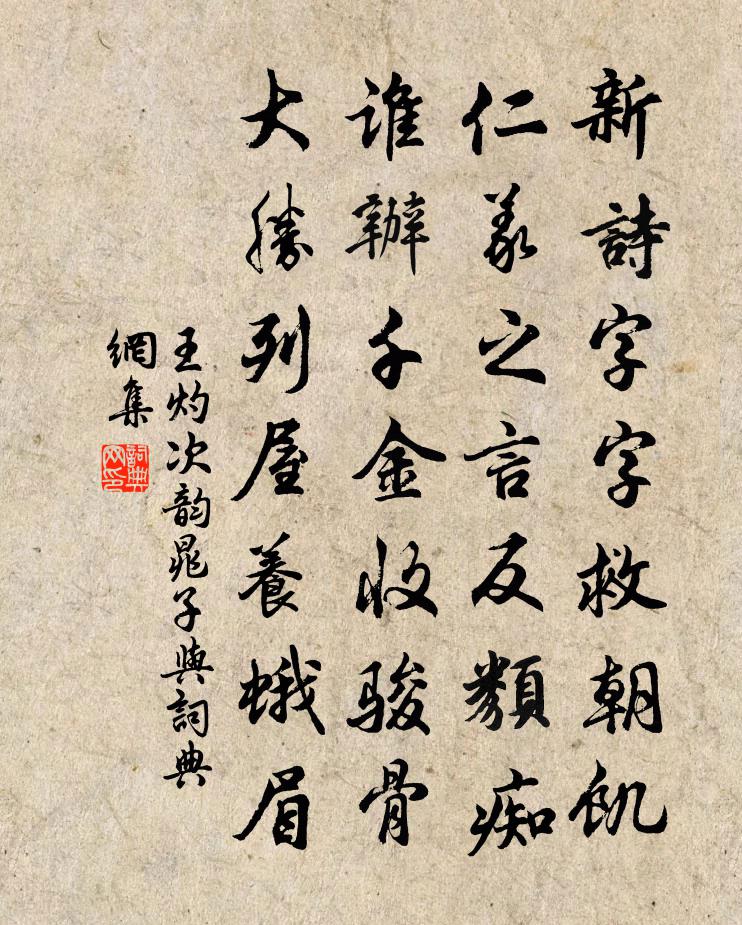 新詩字字救朝飢
仁義之言反類痴
誰辦千金收駿骨
大勝列屋養蛾眉
王灼次韵晁子與詞典
網集
詞典網印